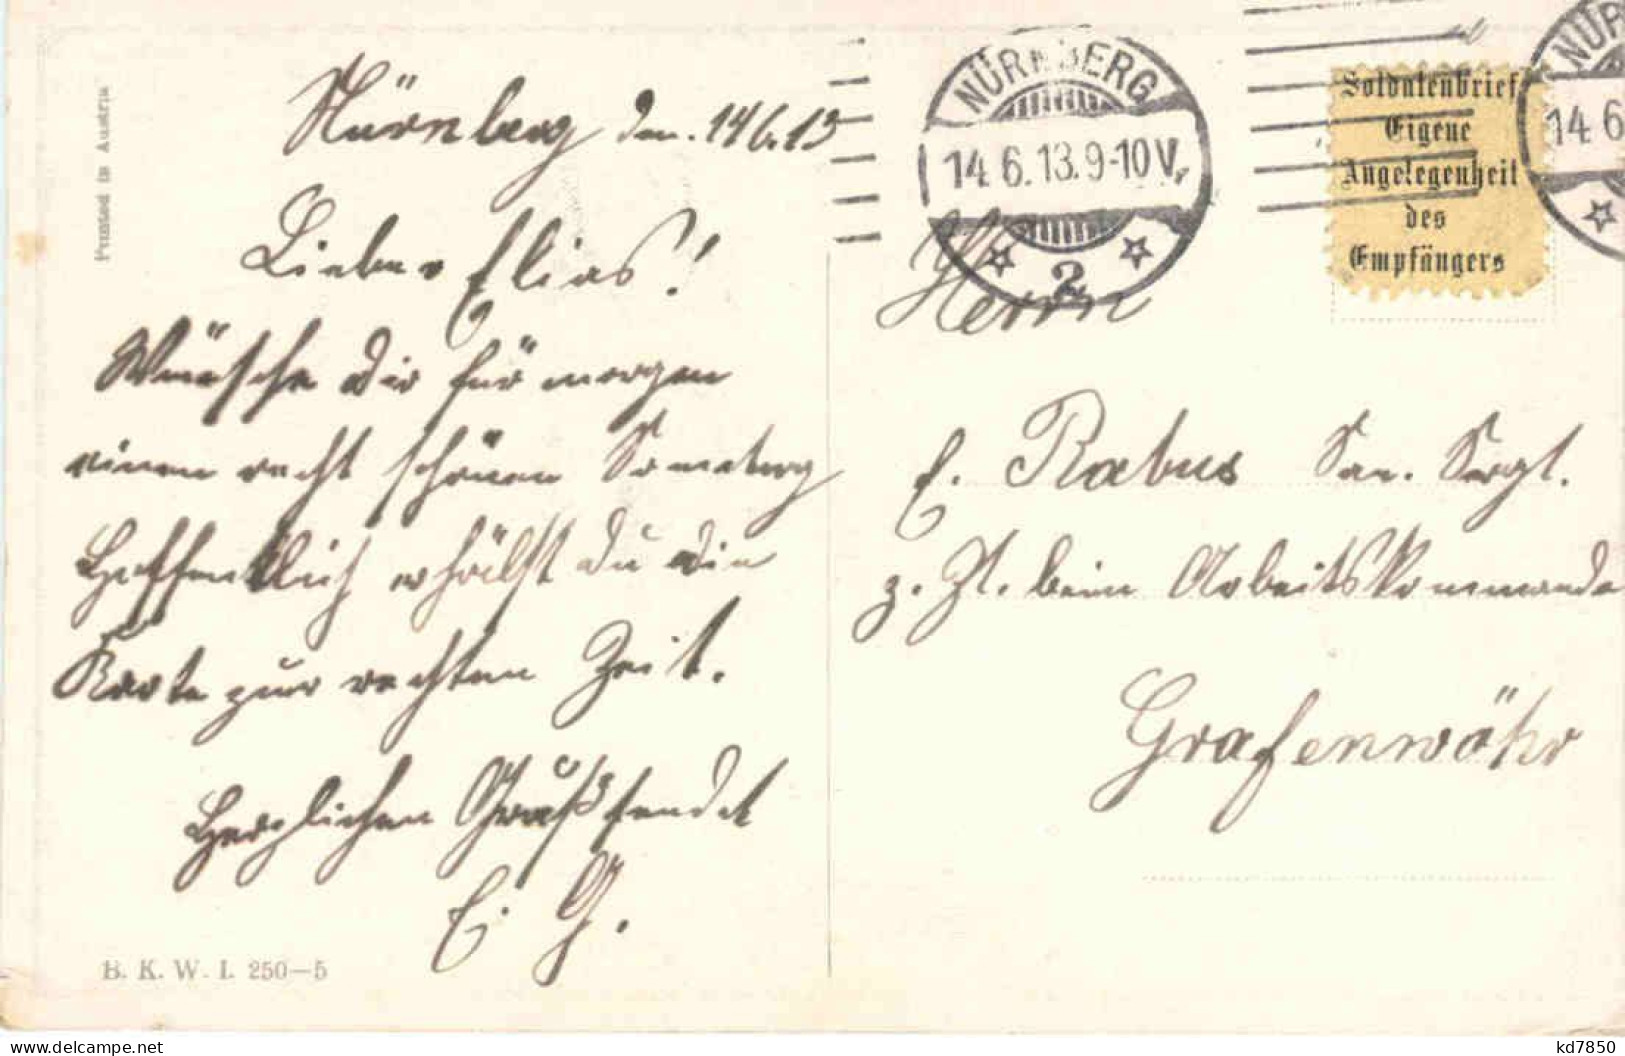 Printed in Austria
Nürnberg den. 14.6.13
Lieber Elias!
Wünsche Dir für morgen
einen recht schönen Sonntag
Hoffentlich erhälst Du die
Karte zur rechten Zeit.
Herzlichen Gruß sendet
E. G.
B. K. W. I. 250-5
NÜRNBERG
14.6.13.9-10V.
2
Soldatenbrief
Eigene
Angelegenheit
des
Empfängers
NÜR
14 6
Herrn
E. Rabus San. Sergt.
z. Zt. beim Arbeitskommando
Grafenwöhr
kd7850